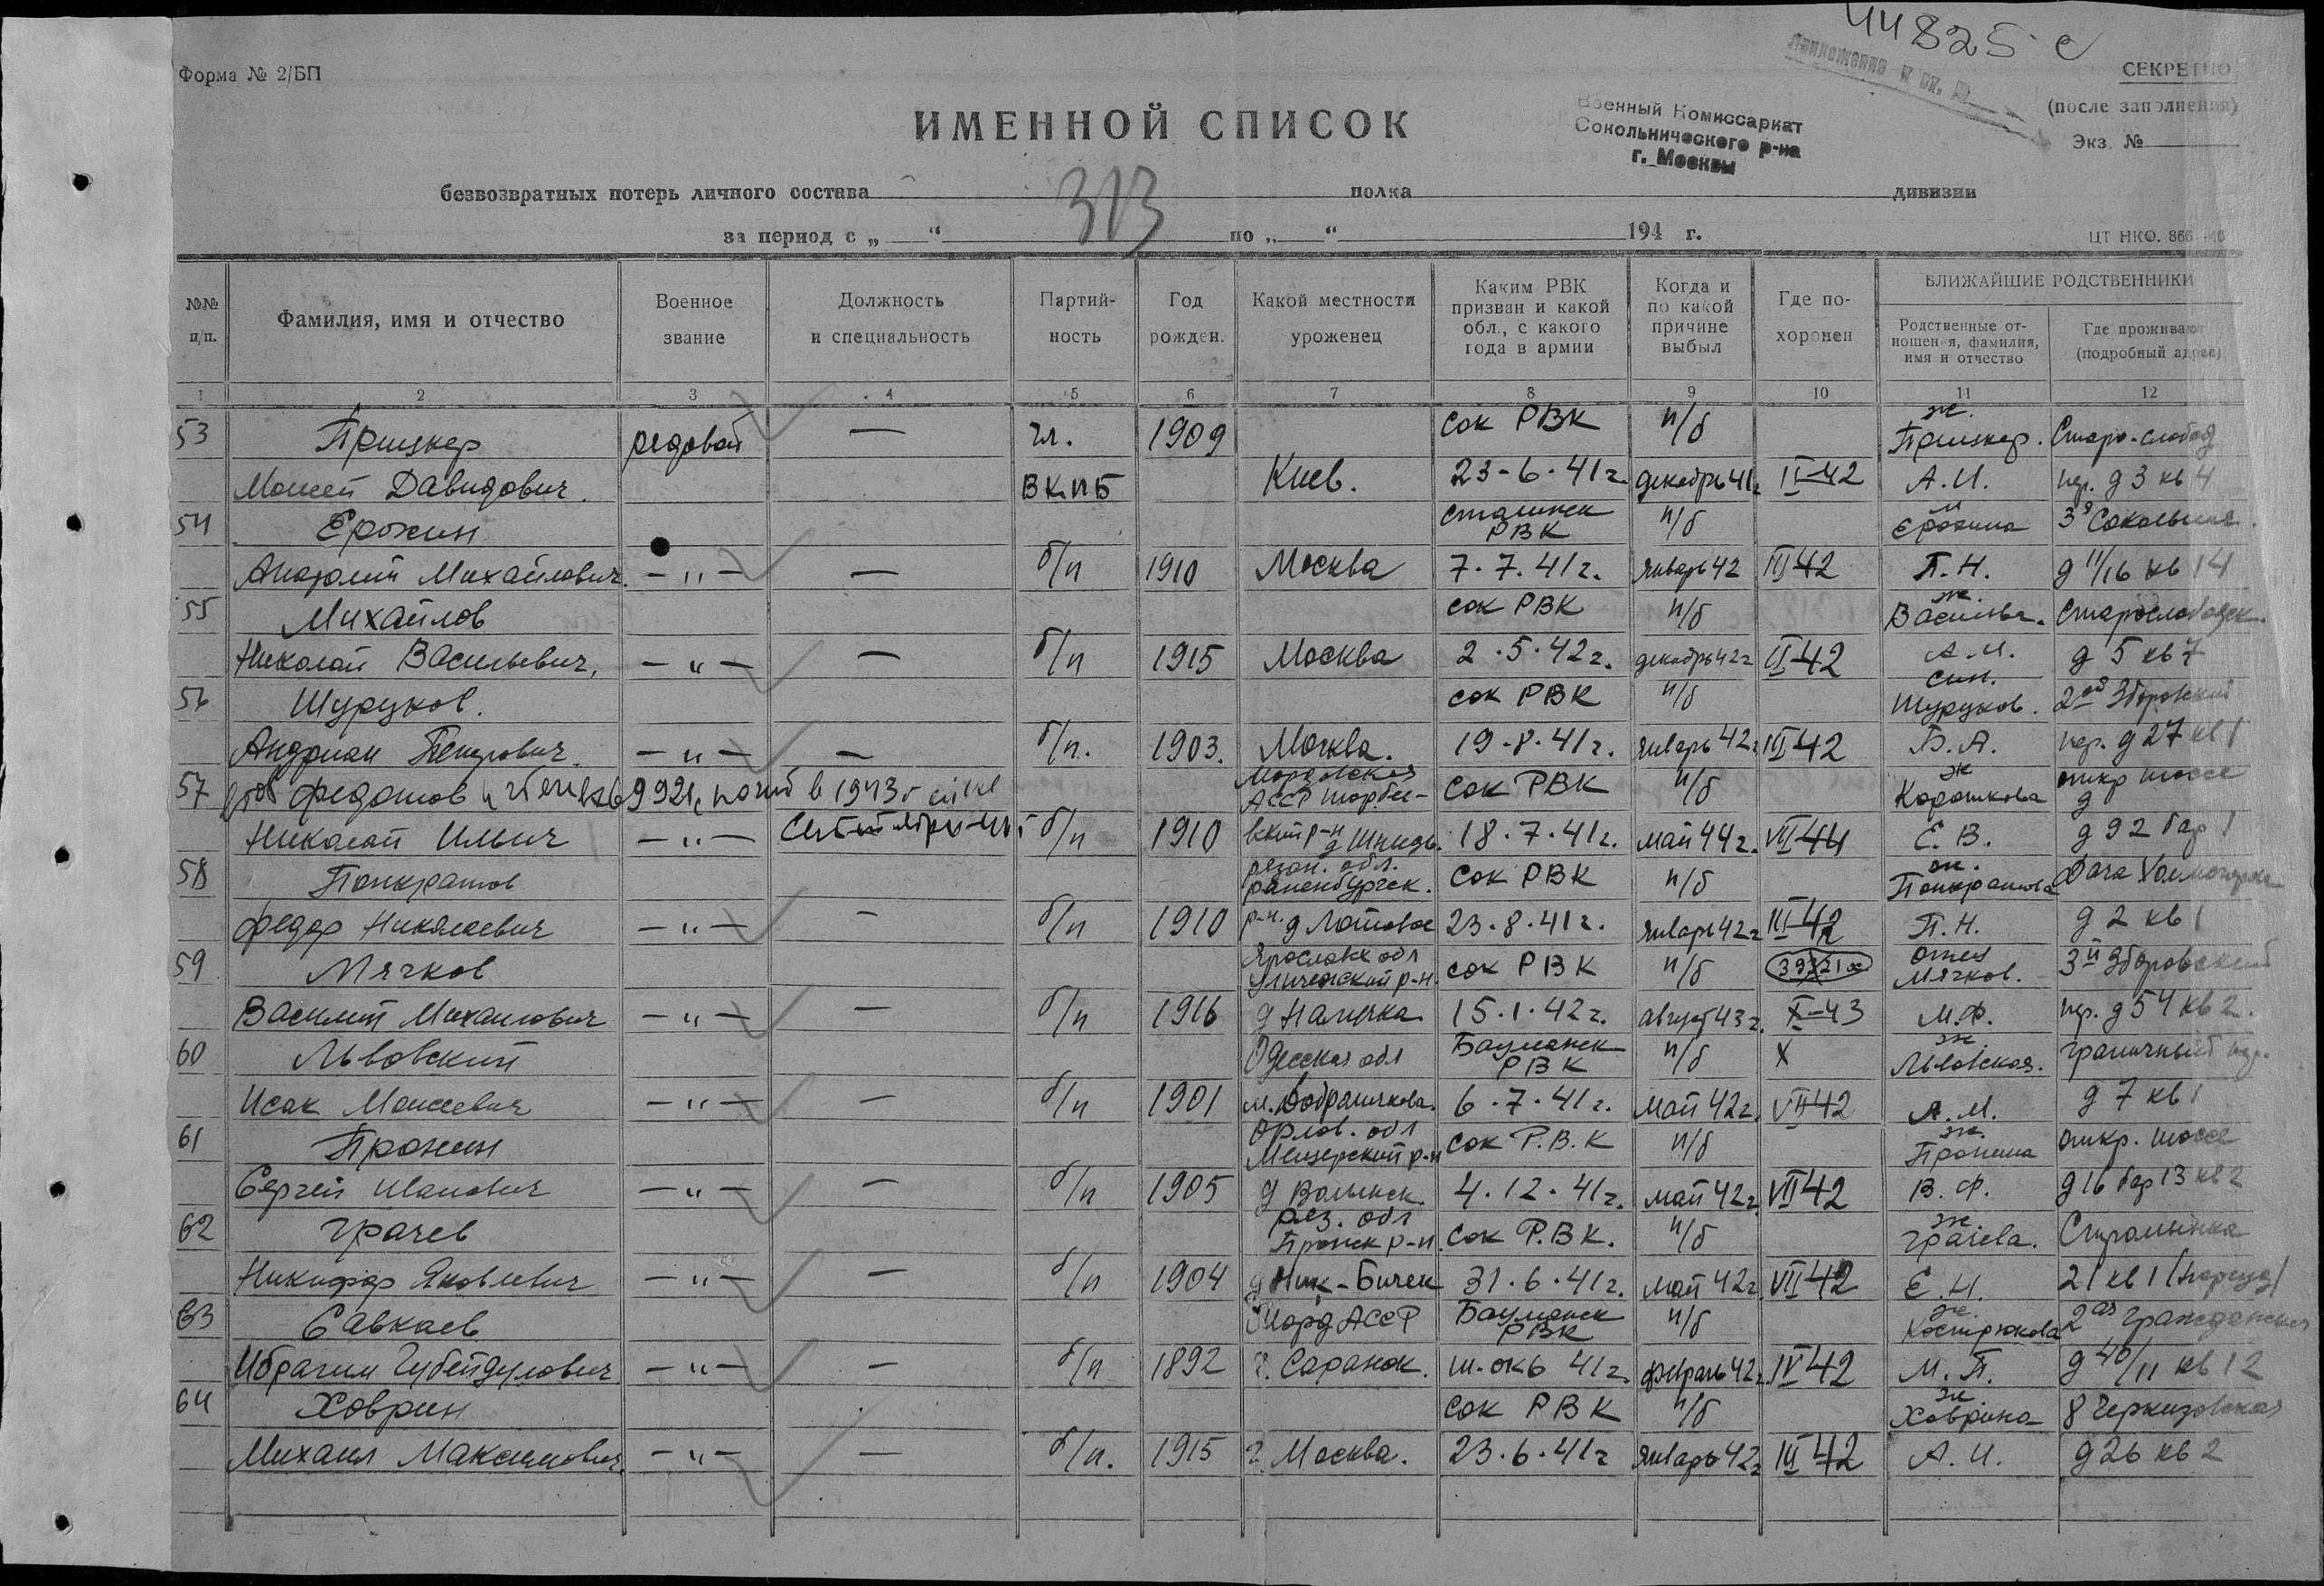 44825 с
Форма № 2/БП
СЕКРЕТНО
(после заполнения)
Экз. №
ИМЕННОЙ СПИСОК
Военный Комиссариат
Сокольнического р-на
г. Москвы
безвозвратных потерь личного состава полка дивизии
313
за период с „ “ по „ “ 194 г.
ЦТ НКО. 866
№№ п/п.
Фамилия, имя и отчество
Военное звание
Должность и специальность
Партий-ность
Год рожден.
Какой местности уроженец
Каким РВК призван и какой обл., с какого года в армии
Когда и по какой причине выбыл
Где по-хоронен
БЛИЖАЙШИЕ РОДСТВЕННИКИ
Родственные от-ношения, фамилия, имя и отчество
Где проживают (подробный адрес)
1 2 3 4 5 6 7 8 9 10 11 12
53 Прицкер редовой — чл. 1909 сок РВК п/б ж. Прицкер. Старо-слобод
Моисей Давидович. ВКПБ Киев. 23-6-41г. декабрь 41г II-42 А.И. пер. д 3 кв 4
54 Ерохин Сталинск РВК п/б м Ерохина 3я Сокольнич.
Анатолий Михайлович. —„— — б/п 1910 Москва 7.7.41г. январь 42 III 42 П.Н. д 11/16 кв 14
55 Михайлов сок РВК п/б ж. Васильва. Старослободск.
Николай Васильевич, —„— — б/п 1915 Москва 2.5.42г. декабрь 42г II-42 А.И. д 5 кв 7
56 Шуруков. сок РВК п/б сын. Шуруков. 2ой Зборовский
Андриан Петрович. —„— — б/п. 1903. Москва. 19.8.41г. январь 42г III 42 Б.А. пер. д 27 кв 1
57 Федотов 992 погиб в 1943г Мордовская АССР Торбее- сок РВК п/б ж Корошкова откр шоссе
Николай Ильич —„— б/п 1910 вский р-н д 18.7.41г. май 44г. VII 44 Е.В. д 92 бар 1
58 Понкратов рязан. обл. раненбургск. сок РВК п/б ж. Понкратова Дача
Федор Николаевич —„— — б/п 1910 р-н. д Лотовое 23.8.41г. январь 42г III-42 П.Н. д 2 кв 1
59 Мячков Ярославск обл Угличский р-н. сок РВК п/б 39321 отец Мячков. 3й Зборовский
Василий Михаилович —„— — б/п 1916 д Налучка 15.1.42г. август 43г. X-43 М.Ф. пер. д 54 кв 2.
60 Львовский Одесская обл Бауманск РВК п/б X ж. Львовская. граничный пер.
Исак Моисеевич —„— — б/п 1901 м. Добраничкова. 6.7.41г. май 42г. VII 42 А.М. д 7 кв 1
61 Пронин Орлов. обл Мещерский р-н сок Р.В.К п/б ж. Пронина откр. шоссе
Сергей Иванович —„— — б/п 1905 д Волынск. 4.12.41г. май 42г VII 42 В.Ф. д 16 бар 13 кв 2
62 Грачев ряз. обл Пронск р-н. сок Р.В К. п/б ж. Грачева. Стромынка
Никифор Яковлевич —„— — б/п 1904 д Ник-Бичек 31.6.41г. май 42г. VII 42 Е.Н. 21 кв 1
63 Савкаев Морд АССР Бауманск РВК п/б ж. Кострюкова 2ая Гражданская
Ибрагим Губейдулович. —„— — б/п 1892 г. Саранск. 41г. февраль 42г. IV 42 М.П. д 46/11 кв 12
64 Ховрин сок РВК п/б ж Ховрина 8 Черкизовская
Михаил Максимович. —„— — б/п. 1915 г. Москва. 23.6.41г январь 42г III 42 А.И. д 26 кв 2